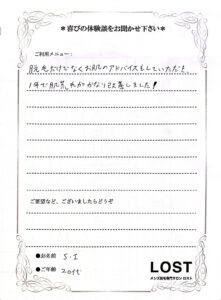 ＊喜びの体験談をお聞かせ下さい＊
ご利用メニュー：
脱毛だけでなくお肌のアドバイスもしていただき、
1年で肌荒れがかなり改善しました!
ご要望など、ございましたらどうぞ
●お名前 S.I
●ご年齢 20代
LOST
メンズ脱毛専門サロン ロスト